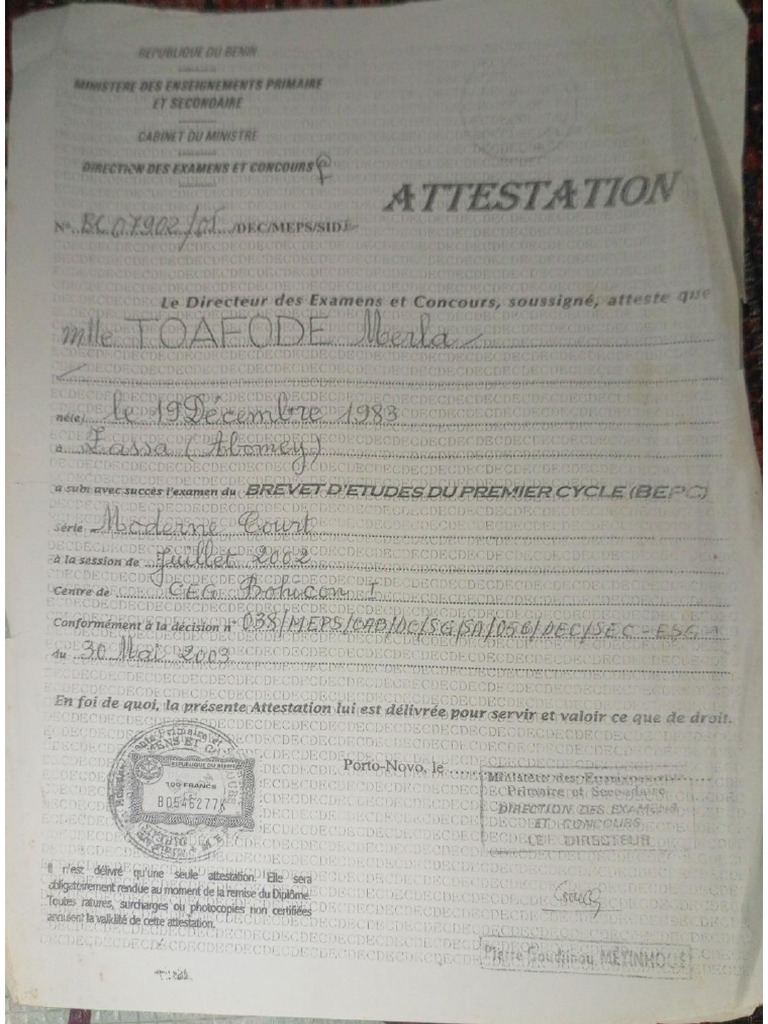 REPUBLIQUE DU BENIN
MINISTERE DES ENSEIGNEMENTS PRIMAIRE
ET SECONDAIRE
CABINET DU MINISTRE
DIRECTION DES EXAMENS ET CONCOURS
ATTESTATION
N° BC 07902/05 /DEC/MEPS/SIDI
Le Directeur des Examens et Concours, soussigné, atteste que
Mlle TOAFODE Merla
né(e) le 19 Décembre 1983
à Zassa (Abomey)
a subi avec succès l'examen du BREVET D'ETUDES DU PREMIER CYCLE (BEPC)
série Moderne Court
à la session de Juillet 2002
Centre de CEG Bohicon I
Conformément à la décision n° 038/MEPS/CAB/DC/SG/SA/056/DEC/SEC-ESG
du 30 Mai 2003
En foi de quoi, la présente Attestation lui est délivrée pour servir et valoir ce que de droit.
Porto-Novo, le
Primaire et Secondaire
DIRECTION DES EXAMENS
ET CONCOURS
LE DIRECTEUR
REPUBLIQUE DU BENIN
100 FRANCS
B0546277K
Il n'est délivré qu'une seule attestation. Elle sera
obligatoirement rendue au moment de la remise du Diplôme.
Toutes ratures, surcharges ou photocopies non certifiées
annulent la validité de cette attestation.
Pierre Goudjinou MÈTINHOUÉ